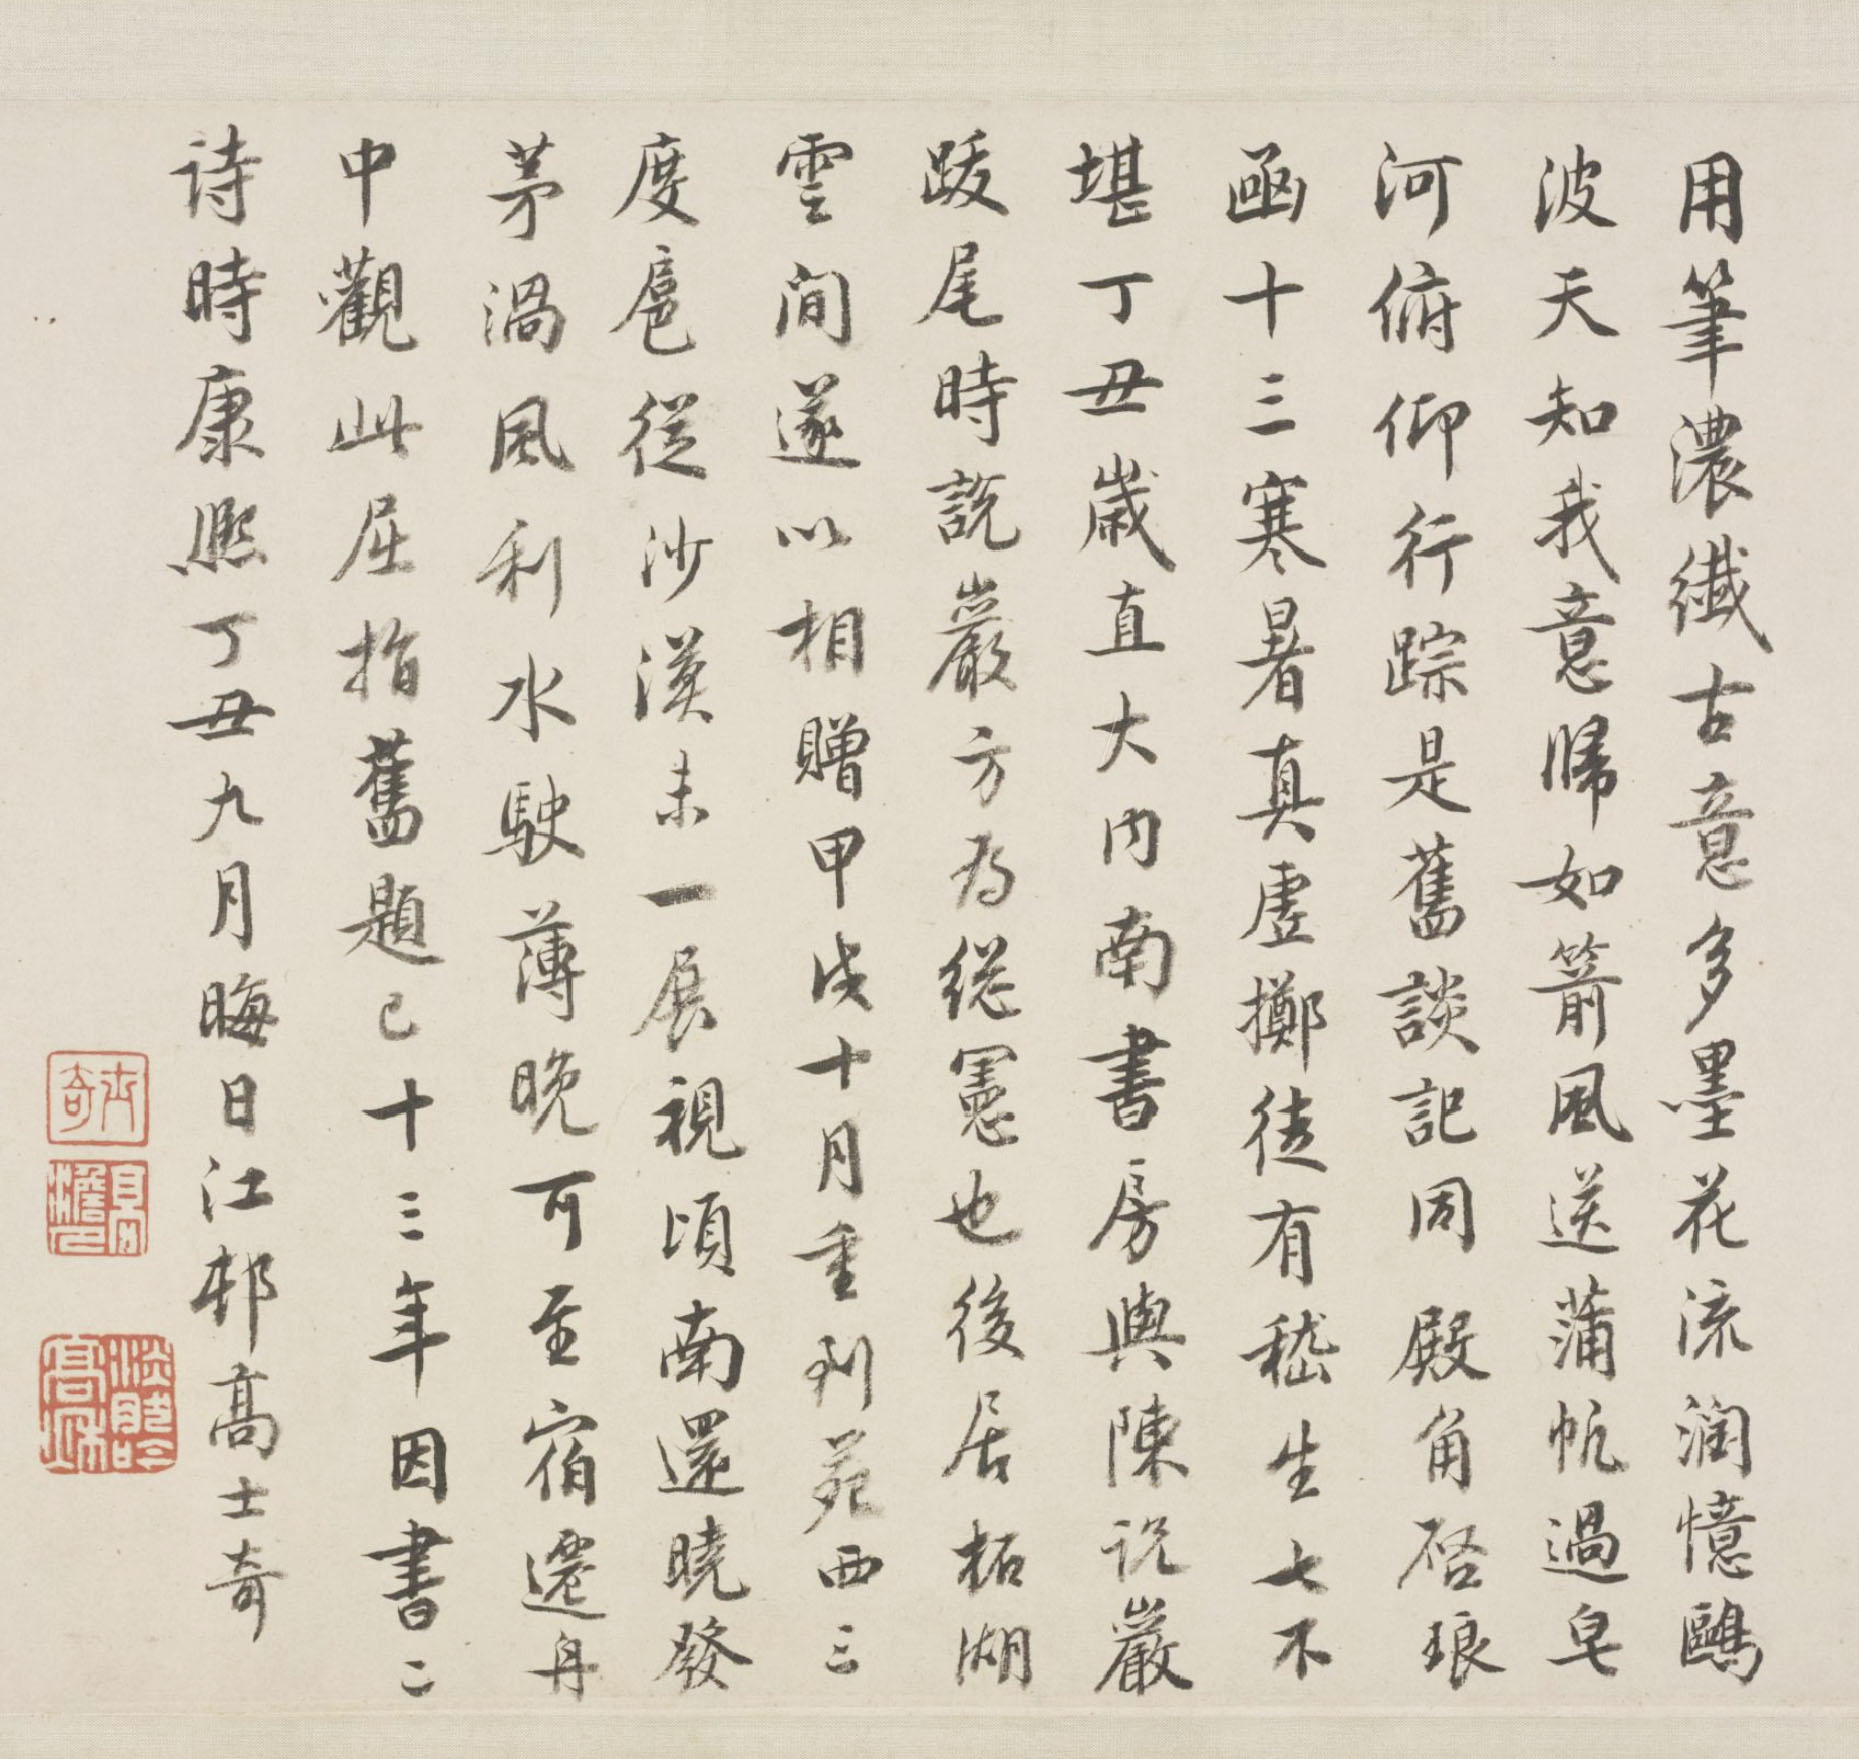 用筆濃纖古意多墨花流潤憶鷗
波天知我意歸如箭風送蒲帆過皂
河俯仰行踪是舊談記同殿角啓琅
函十三寒暑真虛擲徒有嵇生七不
堪丁丑歲直大內南書房與陳說巖
跋尾時說巖方為總憲也後居柘湖
雲間遂以相贈甲戌十月重到苑西三
度扈從沙漠未一展視頃南還曉發
茅渦風利水駛薄晚可至宿遷舟
中觀此屈指舊題已十三年因書二
詩時康熙丁丑九月晦日江邨高士奇
士奇